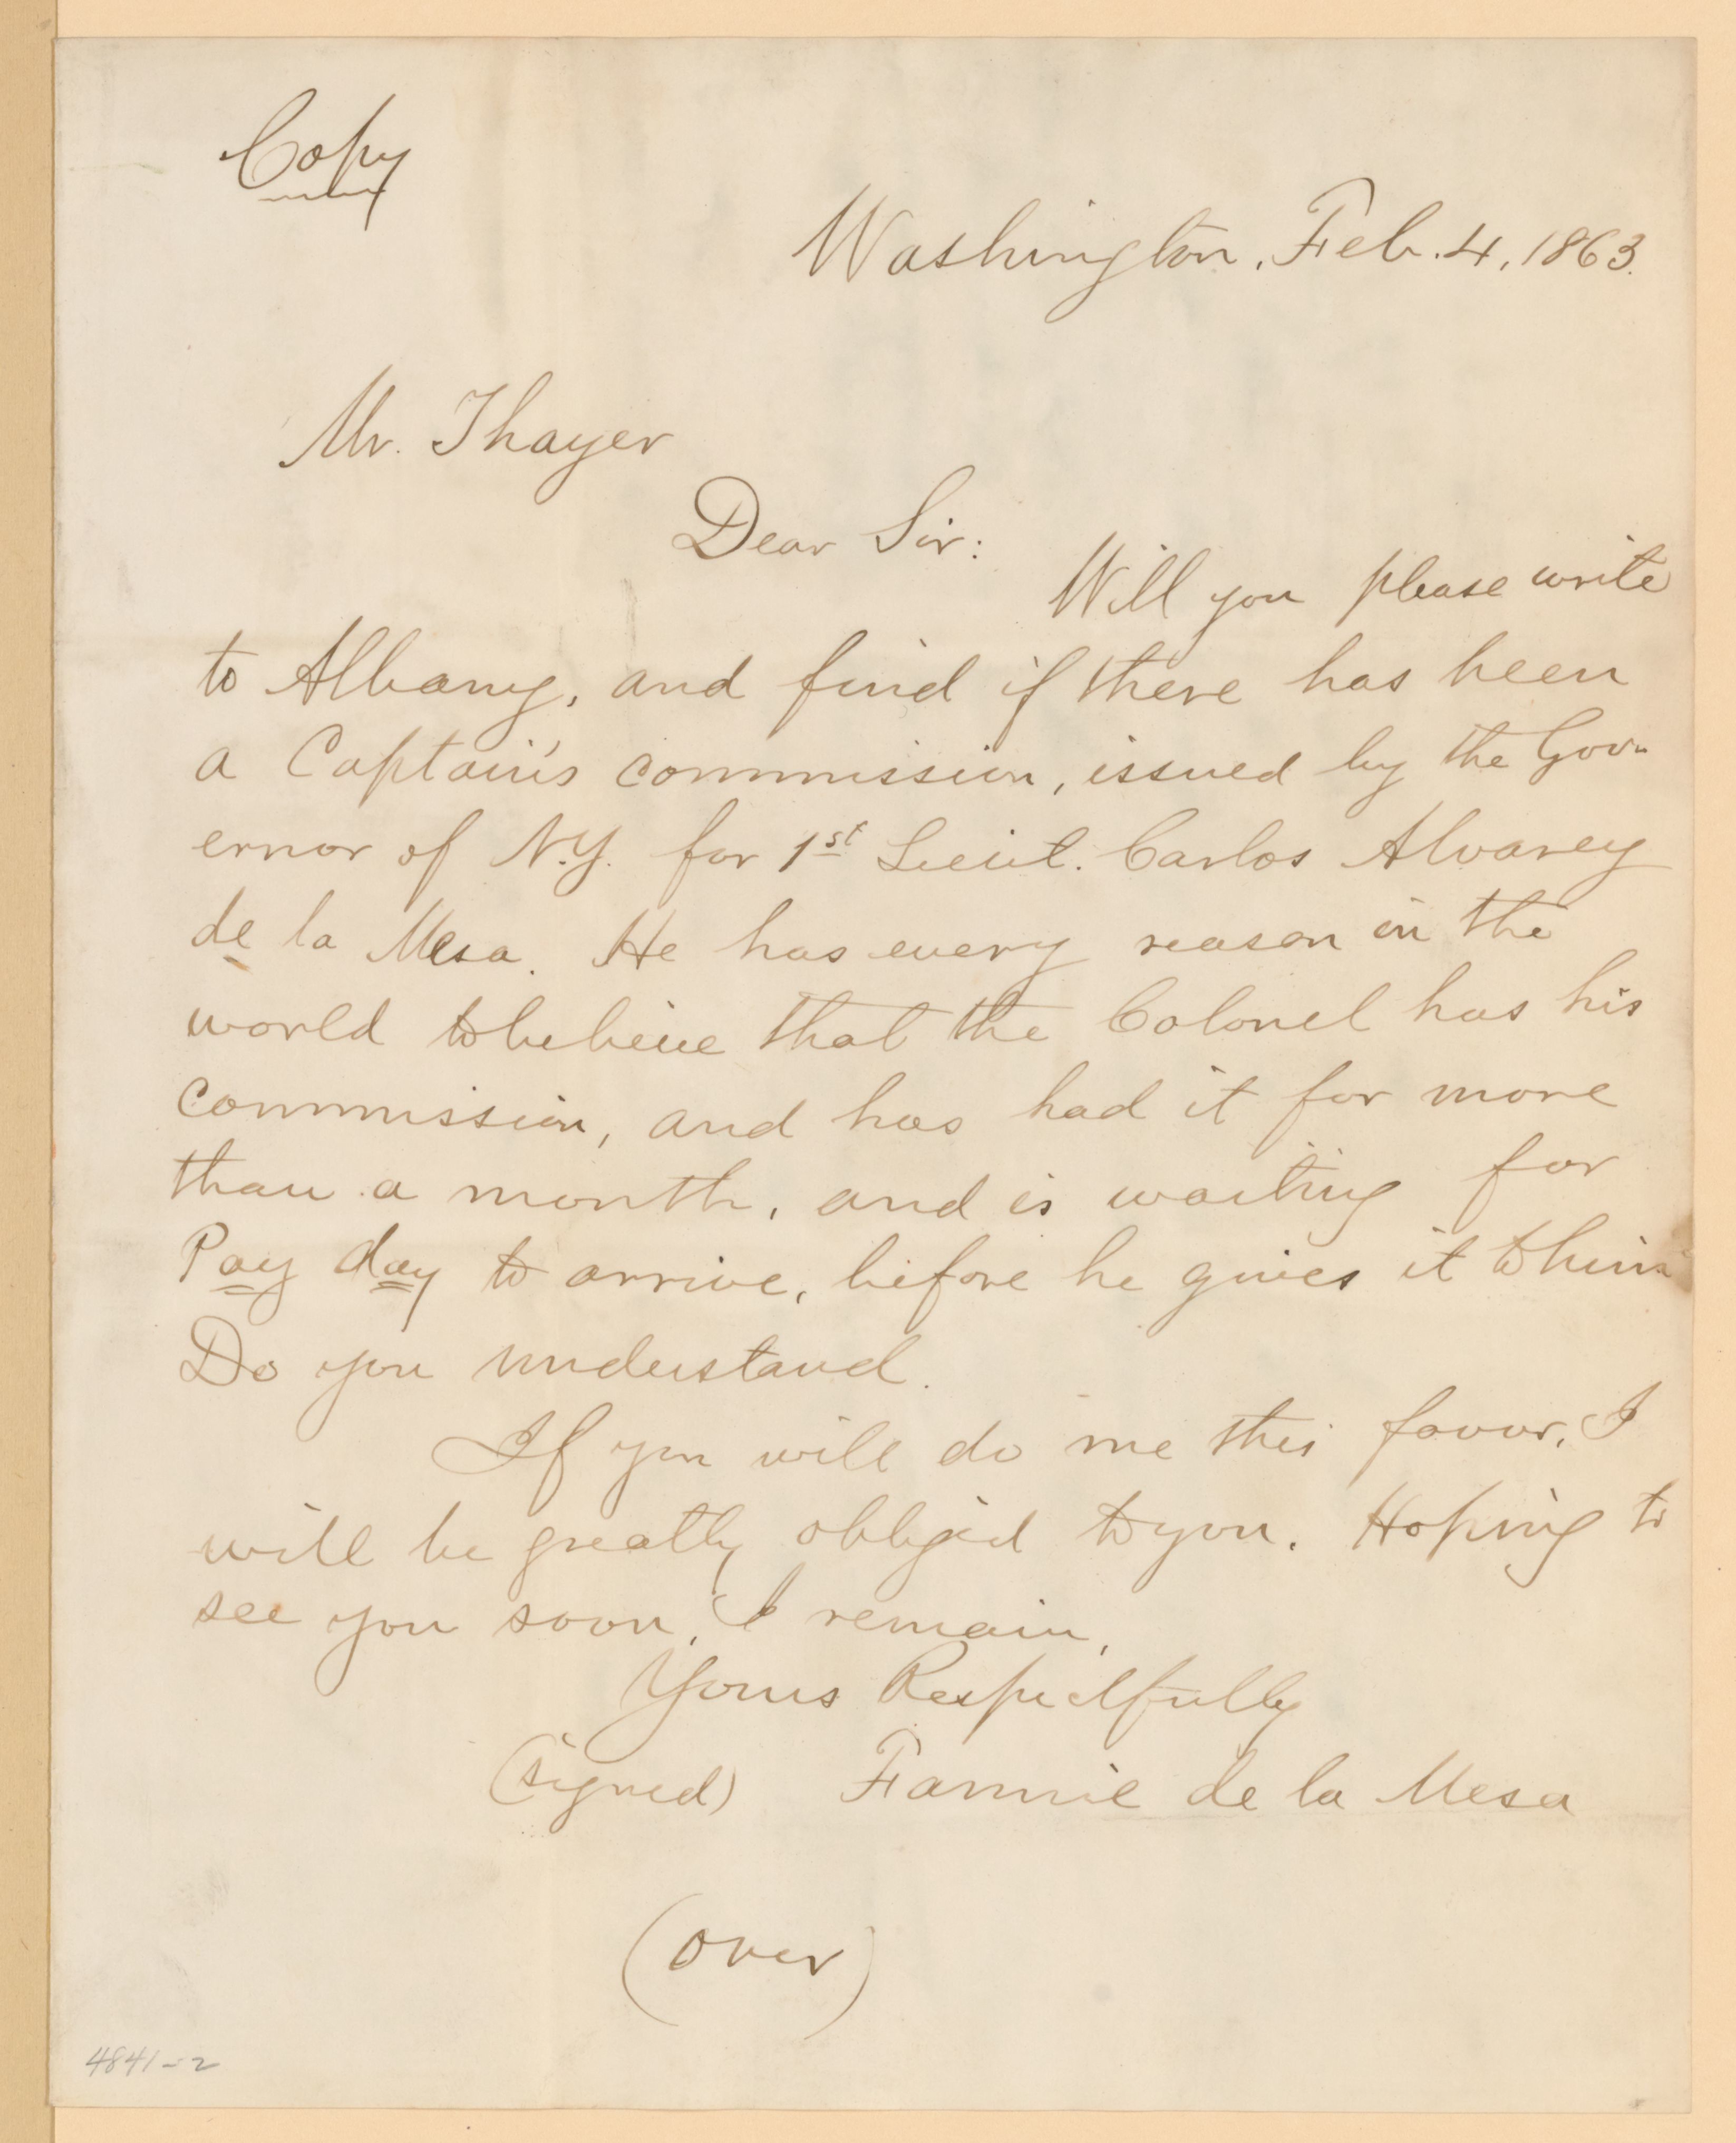 Copy
Washington, Feb. 4, 1863.
Mr. Thayer
Dear Sir:
Will you please write
to Albany, and find if there has been
a Captain's commission, issued by the Gov-
ernor of N.Y. for 1st Lieut. Carlos Alvarez
de la Mesa. He has every reason in the
world to believe that the Colonel has his
commission, and has had it for more
than a month, and is waiting for
Pay day to arrive, before he gives it to him
Do you understand.
If you will do me this favor, I
will be greatly obliged to you. Hoping to
see you soon, I remain,
Yours Respectfully
(signed) Fannie de la Mesa
(over)
4841-2